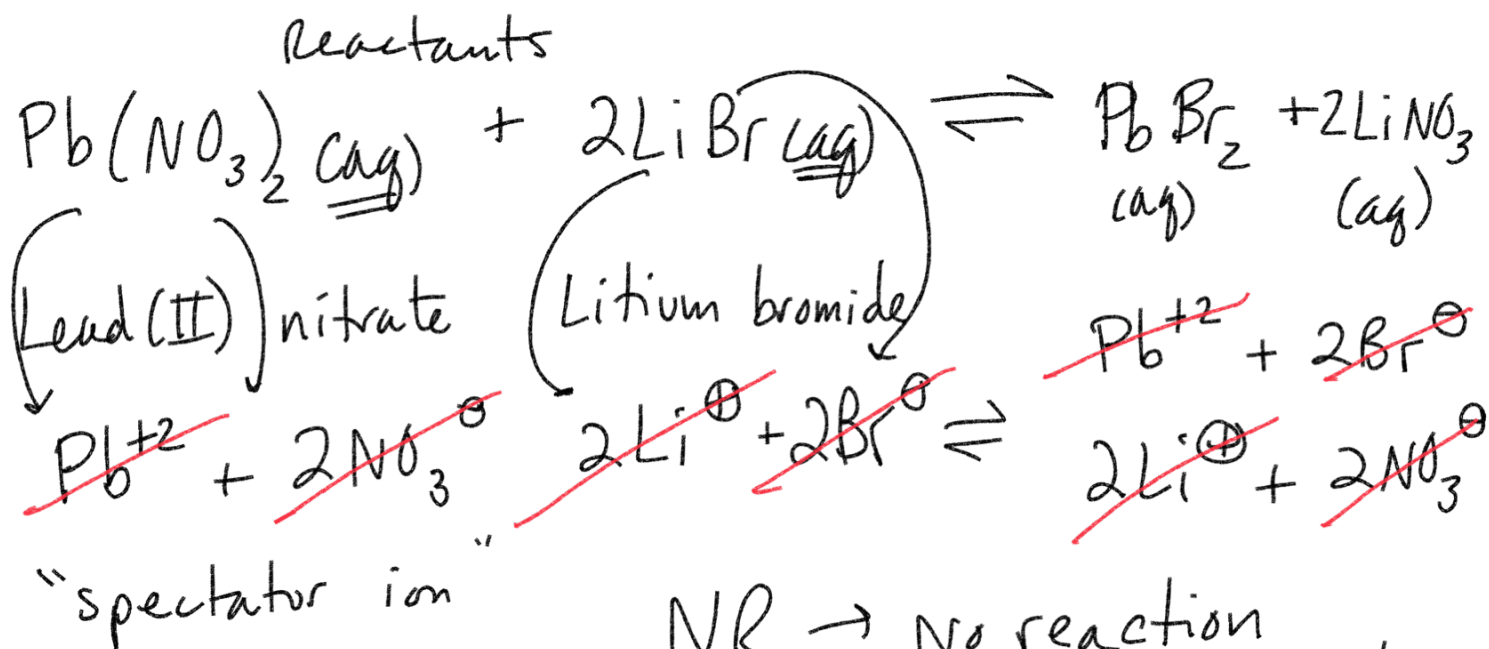 Reactants
Pb(NO₃)₂ (aq) + 2LiBr (aq) ⇌ PbBr₂ + 2LiNO₃
(aq) (aq)
Lead (II) nitrate Litium bromide
Pb⁺² + 2Br⊖
Pb⁺² + 2NO₃⊖ 2Li⊕ + 2Br⊖ ⇌ 2Li⊕ + 2NO₃⊖
"spectator ion"
NR → No reaction